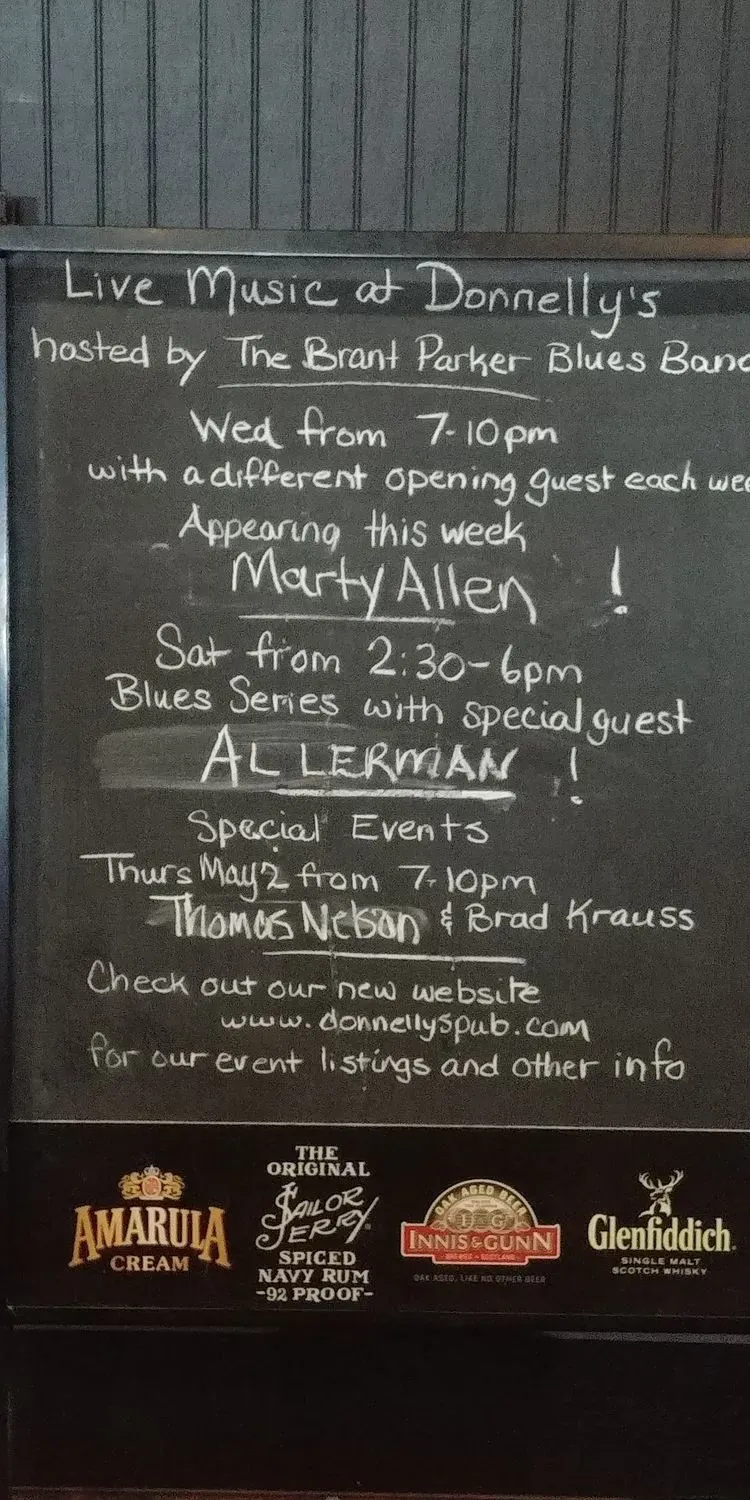 Live Music at Donnelly's
hosted by The Brant Parker Blues Band
Wed from 7-10pm
with a different opening guest each wee
Appearing this week
Marty Allen !
Sat from 2:30-6pm
Blues Series with special guest
AL LERMAN !
Special Events
Thurs May 2 from 7-10pm
Thomas Nelson & Brad Krauss
Check out our new website
www.donnellyspub.com
for our event listings and other info
AMARULA
CREAM
THE
ORIGINAL
SAILOR
JERRY
SPICED
NAVY RUM
-92 PROOF-
OAK AGED BEER
I G
INNIS & GUNN
OAK AGED. LIKE NO OTHER BEER
Glenfiddich
SINGLE MALT
SCOTCH WHISKY